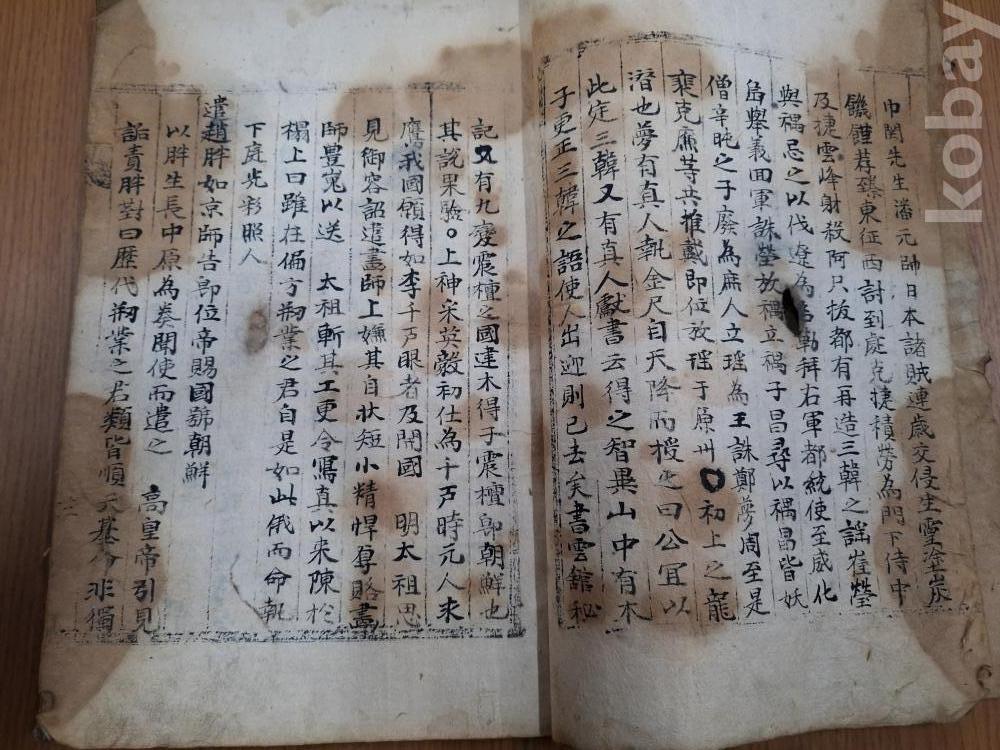 巾関先生潘元帥日本諸賊連歲交侵生霊塗炭
饑饉荐臻東征西討到處克捷積勞為門下侍中
及捷雲峰射殺阿只拔都有再造三韓之謡崔瑩
與禑忌之以伐遼為 勒拜右軍都統使至威化
島擧義囬軍誅瑩放禑立禑子昌尋以禑昌皆妖
僧辛旽之子廢為庶人立瑶為王誅鄭夢周至是
裵克廉等共推戴即位放瑶于原州○初上之龍
潜也夢有真人執金尺自天降而授之曰公冝以
此定三韓又有真人獻書云得之智異山中有木
子更正三韓之語使人出迎則已去矣書雲舘秘
記又有九變震檀之國建木得子震檀即朝鮮也
其說果驗○上神采英毅初仕為千戶時元人求
鷹我國願得如李千戶眼者及開國 明太祖思
見御容詔遣畫師上嫌其自状短小精悍厚賂畫
師豊嵬以送 太祖斬其工更令寫真以来陳於
榻上曰雖在偏方刱業之君自是如此俄而命執
下庭光彩照人
遣趙胖如京師告即位帝賜國號朝鮮
以胖生長中原為奏聞使而遣之 高皇帝引見
詰責胖對曰歷代刱業之君類皆順天 非獨
kobay